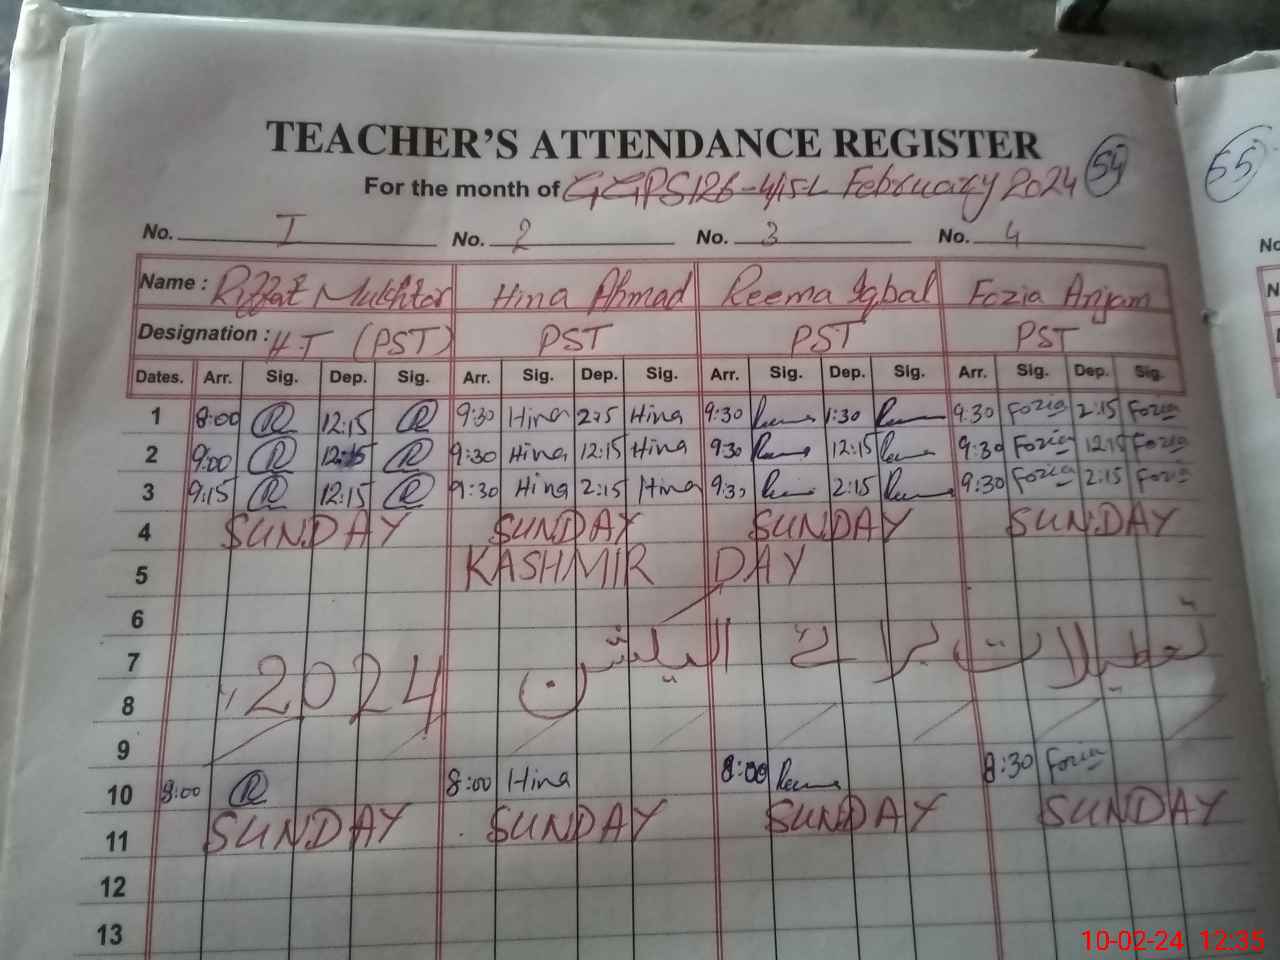 TEACHER'S ATTENDANCE REGISTER 54 55
For the month of GGPS 126-4/15-L February 2024
No. I No. 2 No. 3 No. 4 No
Name : Riffat Mukhtar Hina Ahmad Reema Iqbal Fozia Anjam N
Designation : H.T (PST) PST PST PST
Dates. Arr. Sig. Dep. Sig. Arr. Sig. Dep. Sig. Arr. Sig. Dep. Sig. Arr. Sig. Dep. Sig.
1 8:00 R 12:15 R 9:30 Hina 2:15 Hina 9:30 1:30 9:30 Fozia 2:15 Fozia
2 9:00 R 12:15 R 9:30 Hina 12:15 Hina 9:30 12:15 9:30 Fozia 12:15 Fozia
3 9:15 R 12:15 R 9:30 Hina 2:15 Hina 9:30 2:15 9:30 Fozia 2:15 Fozia
4 SUNDAY SUNDAY SUNDAY SUNDAY
5 KASHMIR DAY
6
7 تعطیلات برائے الیکشن 2024
8
9
10 8:00 R 8:00 Hina 8:00 8:30 Fozia
11 SUNDAY SUNDAY SUNDAY SUNDAY
12
13
10-02-24 12:35